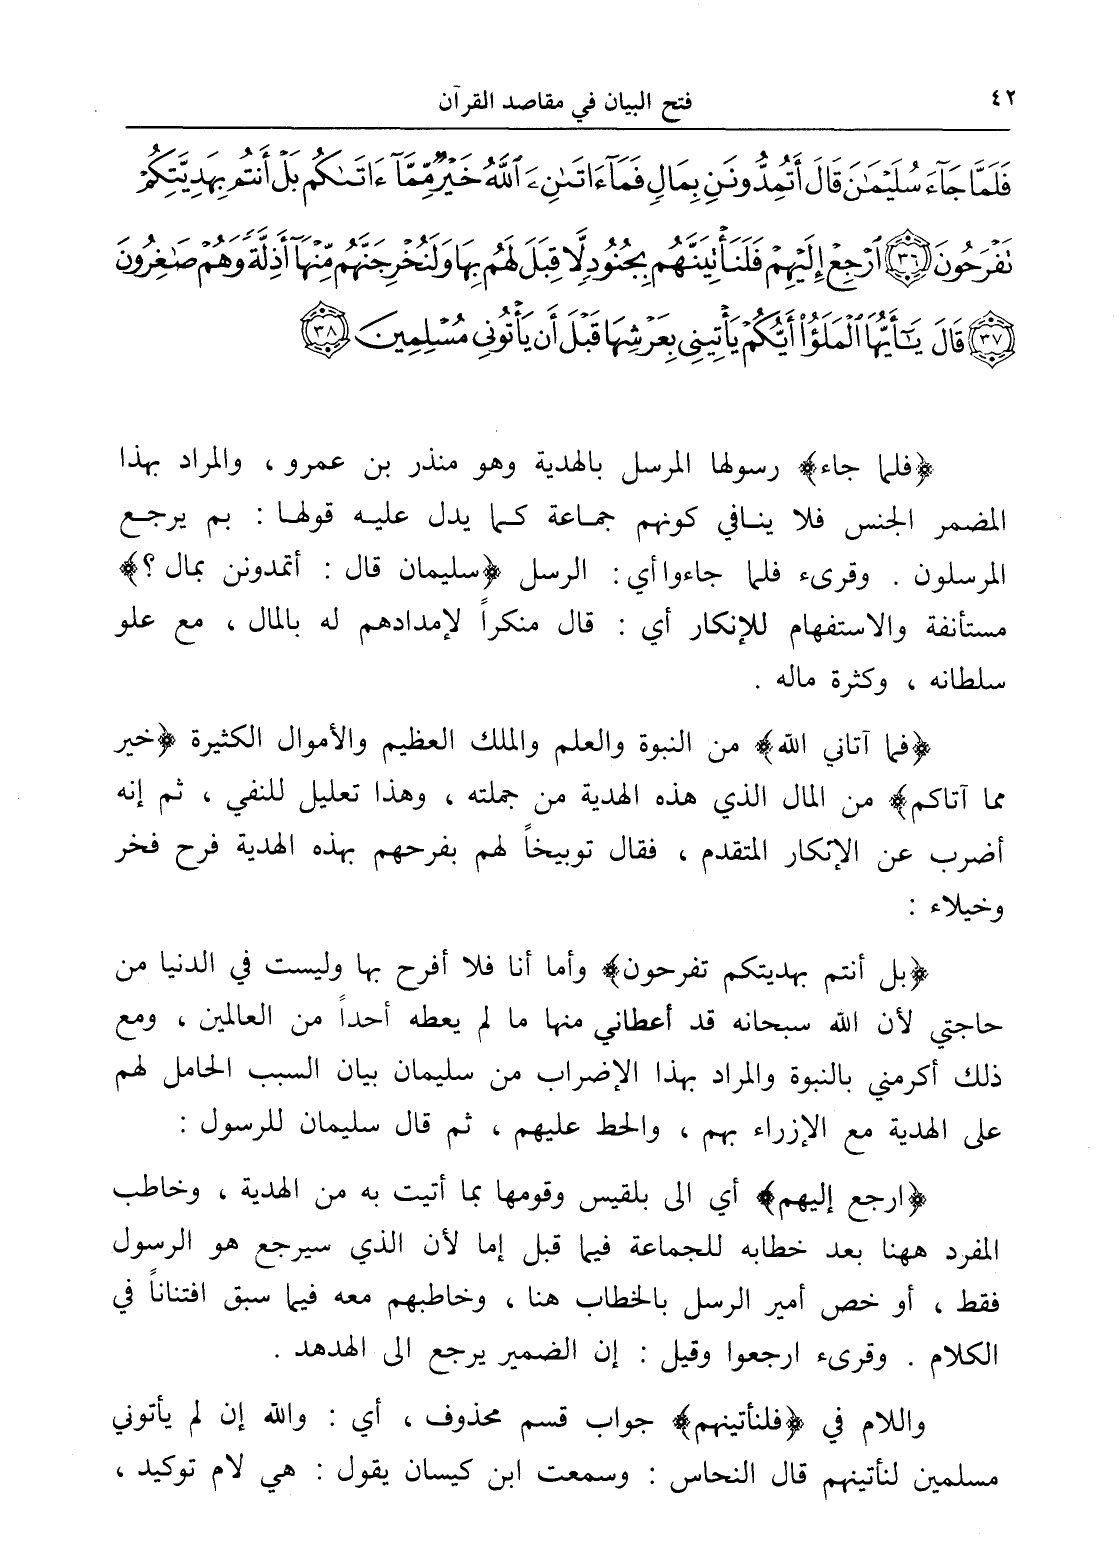 ٤٢ فتح البيان في مقاصد القرآن
فَلَمَّا جَآءَ سُلَيْمَٰنَ قَالَ أَتُمِدُّونَنِ بِمَالٍ فَمَآ ءَاتَىٰنِۦَ ٱللَّهُ خَيْرٌ مِّمَّآ ءَاتَىٰكُم بَلْ أَنتُم بِهَدِيَّتِكُمْ
تَفْرَحُونَ ٣٦ ٱرْجِعْ إِلَيْهِمْ فَلَنَأْتِيَنَّهُم بِجُنُودٍ لَّا قِبَلَ لَهُم بِهَا وَلَنُخْرِجَنَّهُم مِّنْهَآ أَذِلَّةً وَهُمْ صَٰغِرُونَ
٣٧ قَالَ يَٰٓأَيُّهَا ٱلْمَلَؤُا۟ أَيُّكُمْ يَأْتِينِى بِعَرْشِهَا قَبْلَ أَن يَأْتُونِى مُسْلِمِينَ ٣٨
﴿فلما جاء﴾ رسولها المرسل بالهدية وهو منذر بن عمرو ، والمراد بهذا
المضمر الجنس فلا ينافي كونهم جماعة كما يدل عليه قولها : بم يرجع
المرسلون . وقرىء فلما جاءوا أي : الرسل ﴿سليمان قال : أتمدونن بمال ؟﴾
مستأنفة والاستفهام للإنكار أي : قال منكراً لإمدادهم له بالمال ، مع علو
سلطانه ، وكثرة ماله .
﴿فما آتاني الله﴾ من النبوة والعلم والملك العظيم والأموال الكثيرة ﴿خير
مما آتاكم﴾ من المال الذي هذه الهدية من جملته ، وهذا تعليل للنفي ، ثم إنه
أضرب عن الإنكار المتقدم ، فقال توبيخاً لهم بفرحهم بهذه الهدية فرح فخر
وخيلاء :
﴿بل أنتم بهديتكم تفرحون﴾ وأما أنا فلا أفرح بها وليست في الدنيا من
حاجتي لأن الله سبحانه قد أعطاني منها ما لم يعطه أحداً من العالمين ، ومع
ذلك أكرمني بالنبوة والمراد بهذا الإضراب من سليمان بيان السبب الحامل لهم
على الهدية مع الإزراء بهم ، والحط عليهم ، ثم قال سليمان للرسول :
﴿ارجع إليهم﴾ أي الى بلقيس وقومها بما أتيت به من الهدية ، وخاطب
المفرد ههنا بعد خطابه للجماعة فيما قبل إما لأن الذي سيرجع هو الرسول
فقط ، أو خص أمير الرسل بالخطاب هنا ، وخاطبهم معه فيما سبق افتناناً في
الكلام . وقرىء ارجعوا وقيل : إن الضمير يرجع الى الهدهد .
واللام في ﴿فلنأتينهم﴾ جواب قسم محذوف ، أي : والله إن لم يأتوني
مسلمين لنأتينهم قال النحاس : وسمعت ابن كيسان يقول : هي لام توكيد ،